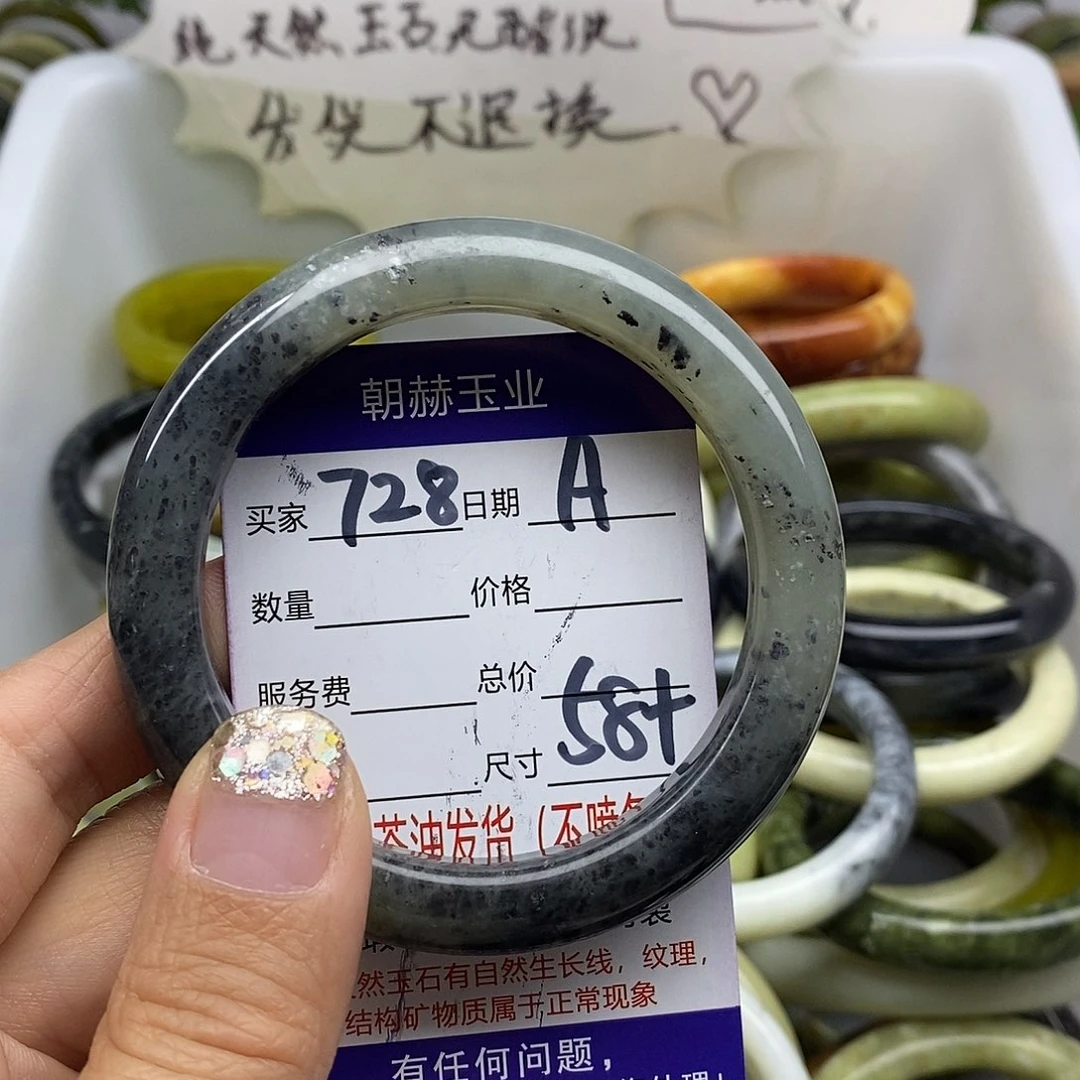 纯天然玉石无酸洗
售出不退换
朝赫玉业
买家 728 日期 A
数量 价格
服务费 总价
尺寸 58+
茶油发货（不喷
然玉石有自然生长线，纹理，
结构矿物质属于正常现象
有任何问题，